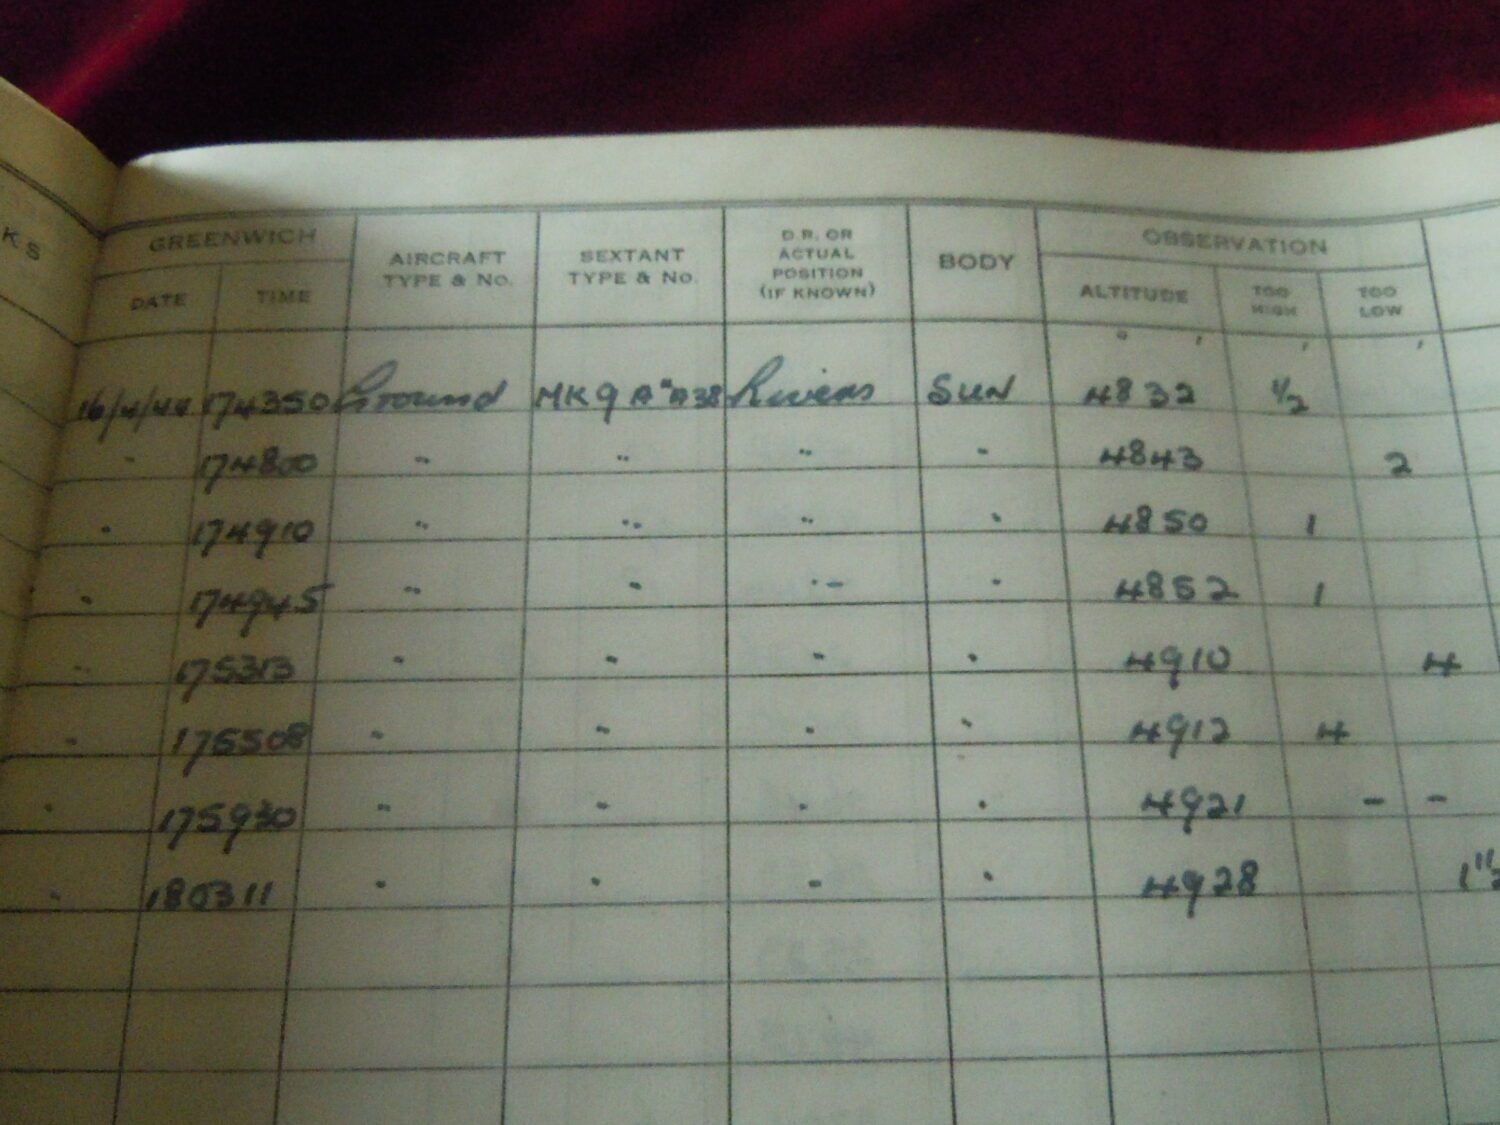 KS
GREENWICH
DATE TIME
AIRCRAFT TYPE & No.
SEXTANT TYPE & No.
D.R. OR ACTUAL POSITION (IF KNOWN)
BODY
OBSERVATION
ALTITUDE TOO HIGH TOO LOW
° ' ' '
16/4/44 174350 Ground MK 9 A "A38 Rivers SUN 4832 1/2
" 174800 " " " " 4843 2
" 174910 " " " " 4850 1
" 174945 " " " " 4852 1
" 175313 " " " " 4910 4
" 175508 " " " " 4912 4
" 175930 " " " " 4921 - -
" 180311 " " " " 4928